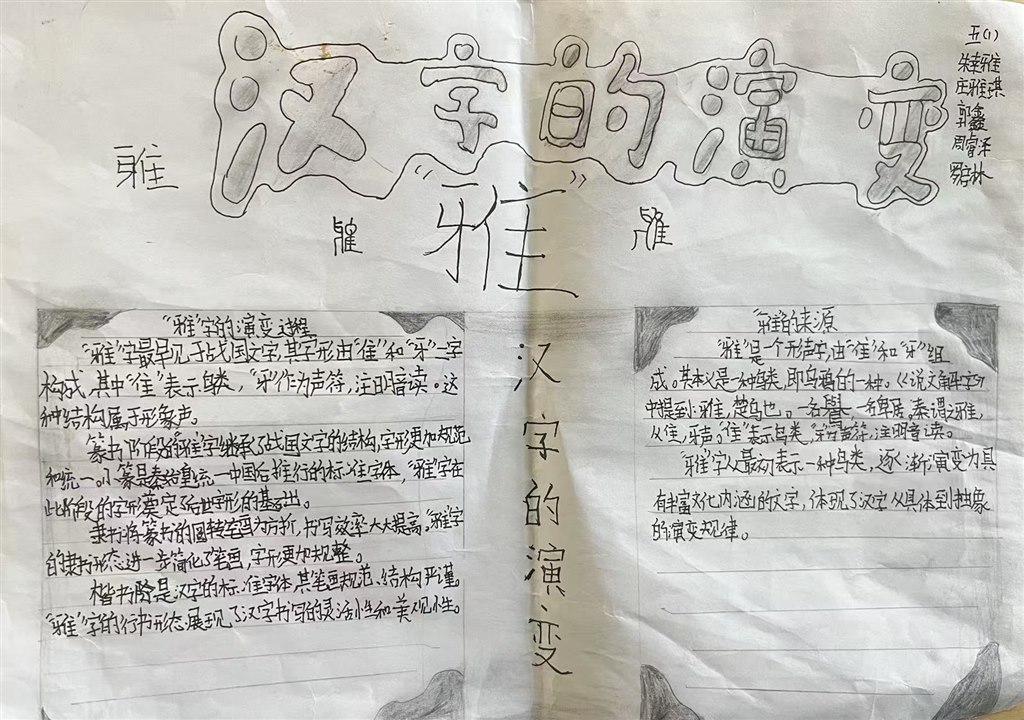 汉字的演变
五(1)
朱雅
庄雅琪
郭鑫
周睿泽
罗梓林
雅
“雅”
雅
雅
汉字的演变
“雅”字的演变过程
“雅”字最早见于战国文字,其字形由“隹”和“牙”二字
构成,其中“隹”表示鸟类,“牙”作为声符,注明音读。这
种结构属于形象声。
篆书阶段的“雅”字继承了战国文字的结构,字形更加规范
和统一。小篆是秦始皇统一中国后推行的标准字体,“雅”字在
此阶段的字形奠定后世字形的基础出。
隶书将篆书的圆转笔画为方折,书写效率大大提高。“雅”字
的隶书形态进一步简化了笔画,字形更加规整。
楷书阶是汉字的标准字体,其笔画规范、结构严谨。
“雅”字的行书形态展现了汉字书写的灵活性和美观性。
“雅”的来源
“雅”是一个形声字,由“隹”和“牙”组
成。其本义是一种鸟类,即乌鸦的一种。《说文解字》
中提到:雅,楚乌也。一名鸒,一名卑居。秦谓之雅,
从隹,牙声。“隹”表示鸟类,“牙”声符,注明音读。
“雅”字从最初表示一种鸟类,逐渐演变为具
有丰富文化内涵的文字,体现了汉字从具体到抽象
的演变规律。